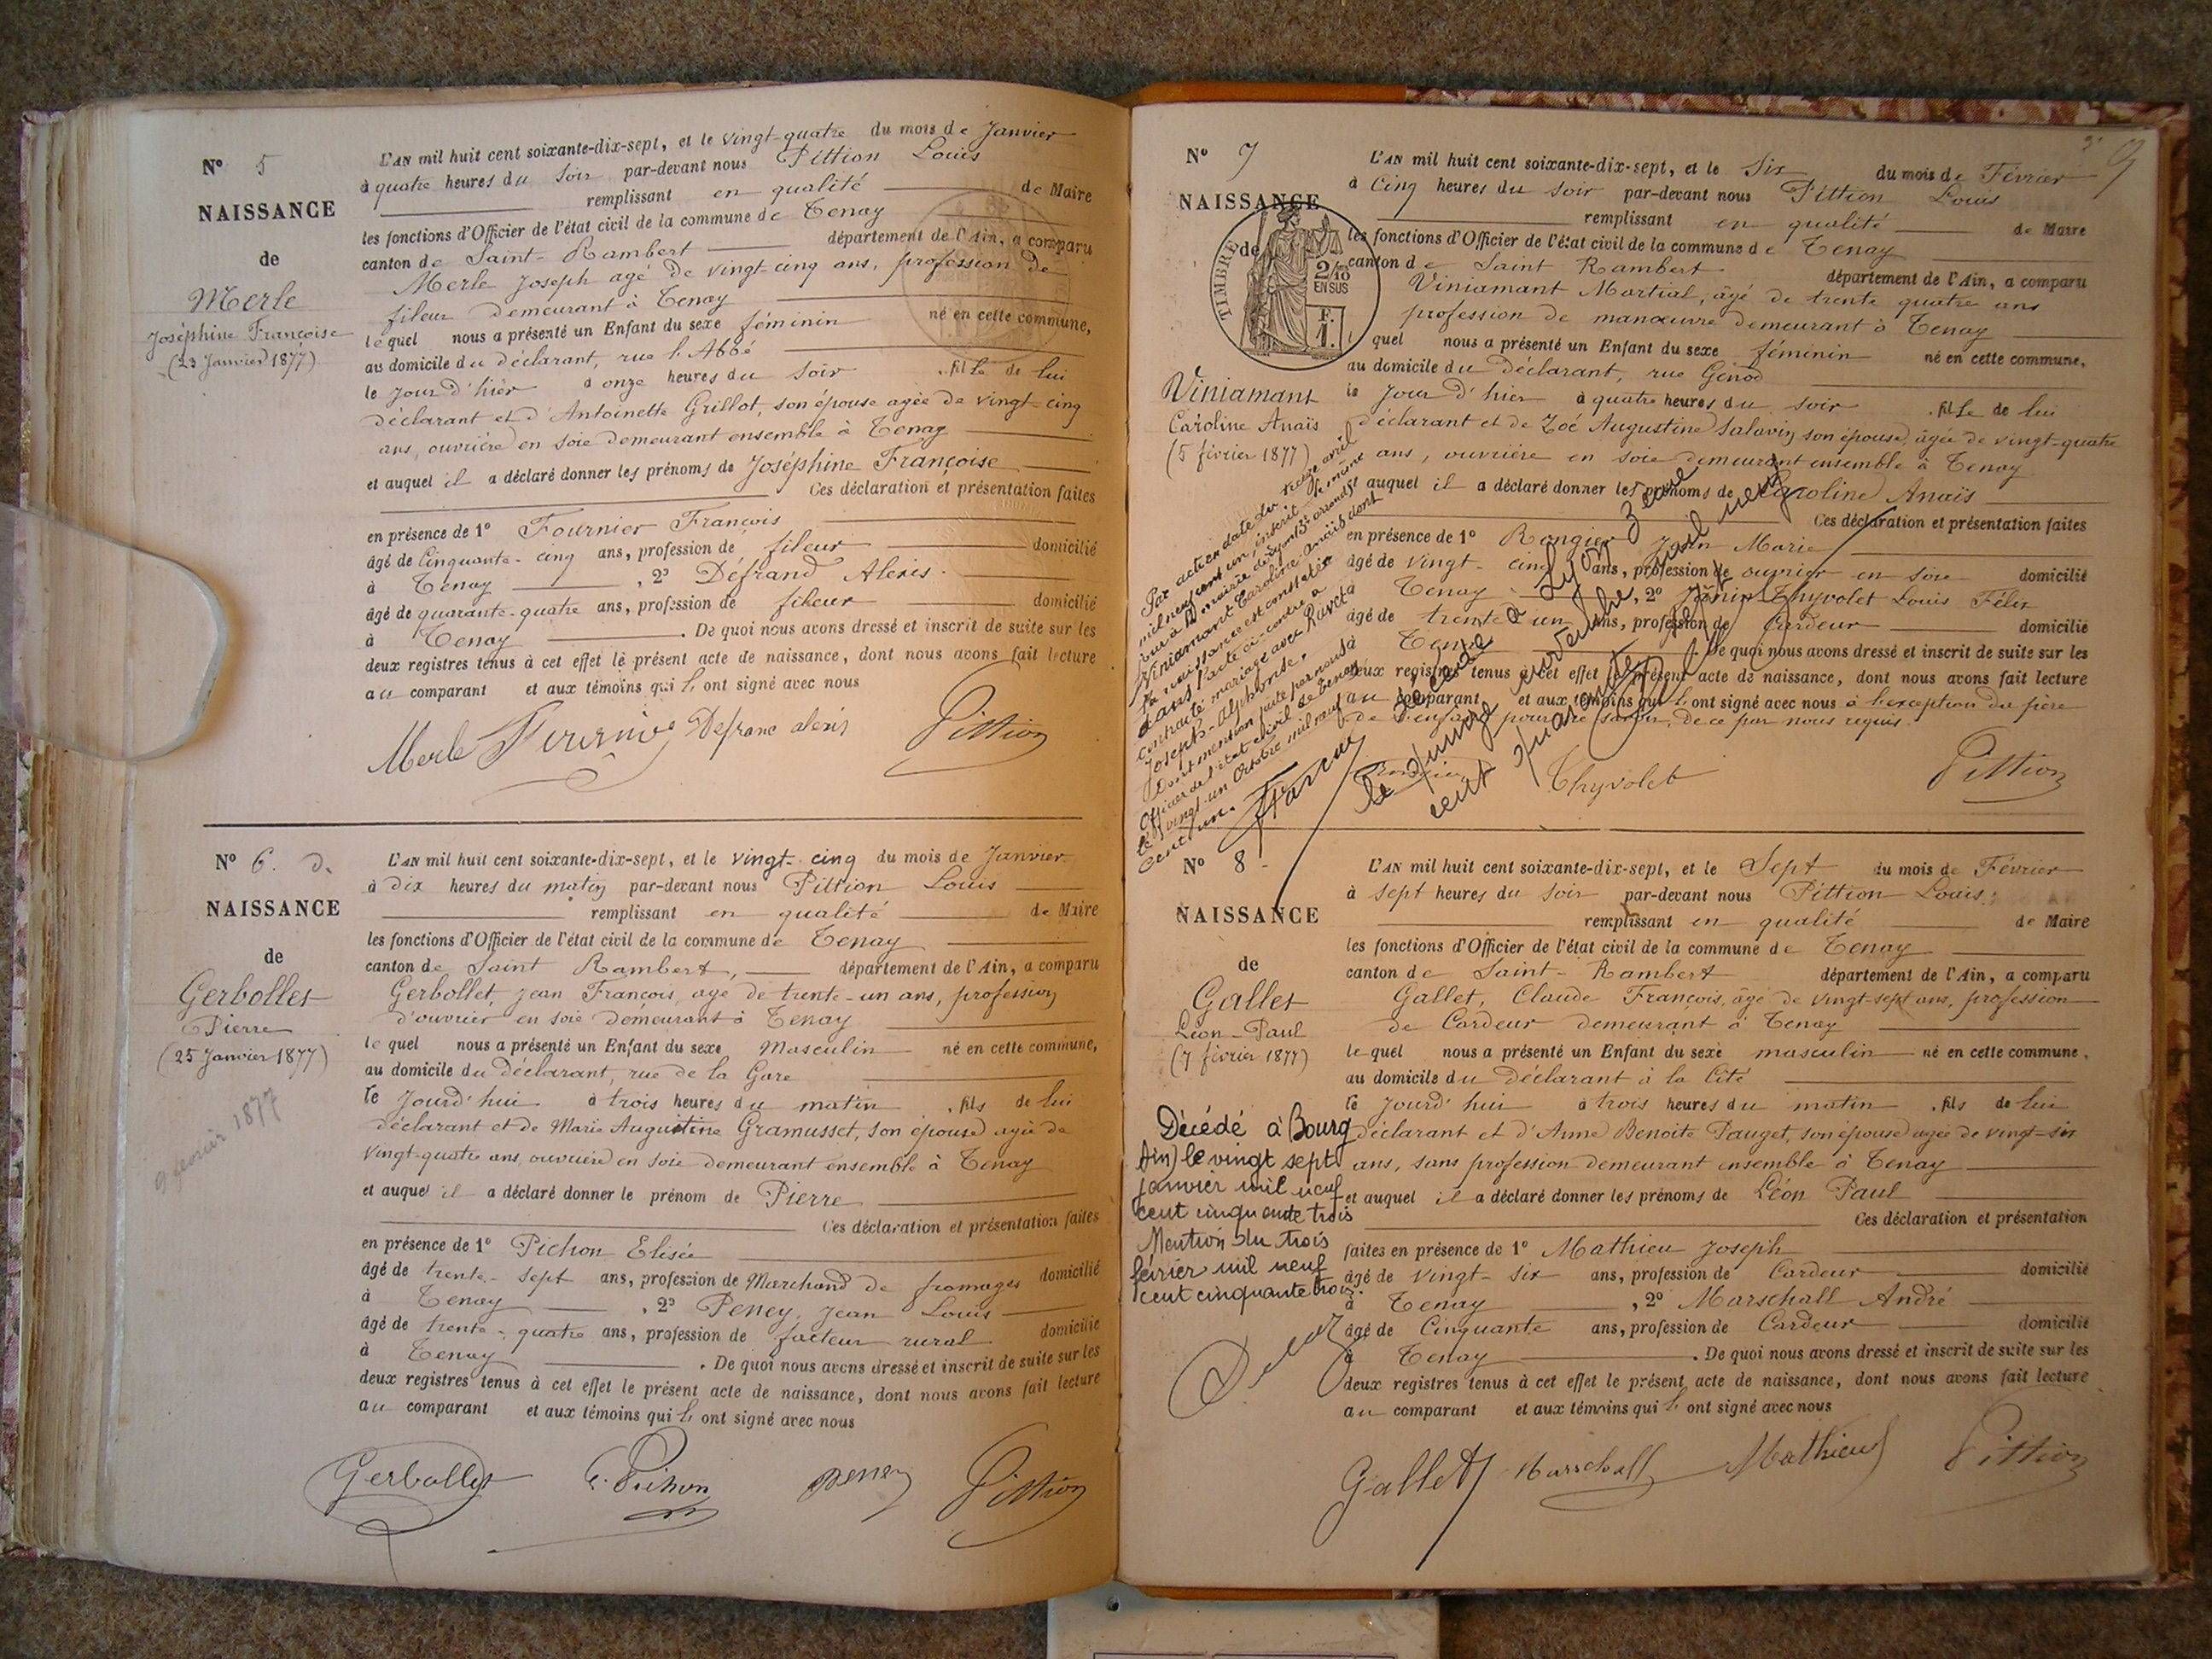 N° 5
NAISSANCE
de
Merle
Joséphine Françoise
(23 Janvier 1877)
L'AN mil huit cent soixante-dix-sept, et le vingt-quatre du mois de Janvier
à quatre heures du soir par-devant nous Pittion Louis
remplissant en qualité de Maire
les fonctions d'Officier de l'état civil de la commune de Tenay
canton de Saint-Rambert département de l'Ain, a comparu
Merle Joseph agé de vingt-cinq ans, profession de
fileur demeurant à Tenay
lequel nous a présenté un Enfant du sexe féminin né en cette commune,
au domicile du déclarant, rue l'Abbé
le jour d'hier à onze heures du soir fille de lui
déclarant et d'Antoinette Grillot, son épouse agée de vingt-cinq
ans, ouvrière en soie demeurant ensemble à Tenay
et auquel il a déclaré donner les prénoms de Joséphine Françoise
Ces déclaration et présentation faites
en présence de 1° Fournier François
âgé de Cinquante-cinq ans, profession de fileur domicilié
à Tenay, 2° Défrand Alexis
âgé de quarante-quatre ans, profession de fileur domicilié
à Tenay. De quoi nous avons dressé et inscrit de suite sur les
deux registres tenus à cet effet le présent acte de naissance, dont nous avons fait lecture
au comparant et aux témoins qui l' ont signé avec nous
Merle Fournier Defranc alexis Pittion
N° 6. D.
NAISSANCE
de
Gerbollet
Pierre
(25 Janvier 1877)
9 février 1877
L'AN mil huit cent soixante-dix-sept, et le vingt-cinq du mois de Janvier
à dix heures du matin par-devant nous Pittion Louis
remplissant en qualité de Maire
les fonctions d'Officier de l'état civil de la commune de Tenay
canton de Saint Rambert, département de l'Ain, a comparu
Gerbollet, Jean François, agé de trente-un ans, profession
d'ouvrier en soie demeurant à Tenay
lequel nous a présenté un Enfant du sexe Masculin né en cette commune,
au domicile du déclarant, rue de la Gare
le Jourd'hui à trois heures du matin, fils de lui
déclarant et de Marie Augustine Gramusset, son épouse agée de
vingt-quatre ans, ouvrière en soie demeurant ensemble à Tenay
et auquel il a déclaré donner le prénom de Pierre
Ces déclaration et présentation faites
en présence de 1° Pichon Elisée
âgé de trente-sept ans, profession de Marchand de fromages domicilié
à Tenay, 2° Peney, Jean Louis
âgé de trente-quatre ans, profession de facteur rural domicilié
à Tenay. De quoi nous avons dressé et inscrit de suite sur les
deux registres tenus à cet effet le présent acte de naissance, dont nous avons fait lecture
au comparant et aux témoins qui l' ont signé avec nous
Gerbollet E. Pichon peney Pittion
9
N° 7
NAISSANCE
de
TIMBRE
2/10
EN SUS
F.
1.
Viniamant
Caroline Anaïs
(5 février 1877)
L'AN mil huit cent soixante-dix-sept, et le Six du mois de Février
à Cinq heures du soir par-devant nous Pittion Louis
remplissant en qualité de Maire
les fonctions d'Officier de l'état civil de la commune de Tenay
canton de Saint Rambert département de l'Ain, a comparu
Viniamant Martial, âgé de trente quatre ans
profession de manœuvre demeurant à Tenay
lequel nous a présenté un Enfant du sexe féminin né en cette commune,
au domicile du déclarant, rue Génod
le jour d'hier à quatre heures du soir, fille de lui
déclarant et de Zoé Augustine Salavin, son épouse, âgée de vingt-quatre
ans, ouvrière en soie demeurant ensemble à Tenay
auquel il a déclaré donner les prénoms de Caroline Anaïs
Ces déclaration et présentation faites
en présence de 1° Rongier Jean Marie
âgé de vingt-cinq ans, profession de ouvrier en soie domicilié
Tenay, 2° Janin-Thyvolet Louis Félix
âgé de trente-un ans, profession de Cardeur domicilié
Tenay. De quoi nous avons dressé et inscrit de suite sur les
deux registres tenus à cet effet le présent acte de naissance, dont nous avons fait lecture
au comparant et aux témoins qui l' ont signé avec nous à l'exception du père
de l'enfant pour ne savoir, de ce par nous requis.
Thyvolet Pittion
Par acte en date du treize avril
mil neuf cent un, inscrit le même
jour à la mairie de Lyon 3e arrondist
Viniamant Caroline Anaïs dont
la naissance est constatée
dans l'acte ci-contre a
contracté mariage avec Raveta
Joseph-Alphonse.
Dont mention faite par nous
Officier de l'état civil de Tenay
le vingt-un Octobre mil neuf
cent un.
Décédée à Lyon 3ème
le quinze novembre mil neuf
cent quarante sept
N° 8
NAISSANCE
de
Gallet
Léon-Paul
(7 février 1877)
L'AN mil huit cent soixante-dix-sept, et le Sept du mois de Février
à sept heures du soir par-devant nous Pittion Louis
remplissant en qualité de Maire
les fonctions d'Officier de l'état civil de la commune de Tenay
canton de Saint-Rambert département de l'Ain, a comparu
Gallet, Claude François, âgé de vingt-sept ans, profession
de Cardeur demeurant à Tenay
lequel nous a présenté un Enfant du sexe masculin né en cette commune,
au domicile du déclarant à la Cité
le Jourd'hui à trois heures du matin, fils de lui
déclarant et d'Anne Benoite Pauget, son épouse agée de vingt-six
ans, sans profession demeurant ensemble à Tenay
et auquel il a déclaré donner les prénoms de Léon Paul
Ces déclaration et présentation
faites en présence de 1° Mathieu Joseph
âgé de vingt-six ans, profession de Cardeur domicilié
à Tenay, 2° Marschall André
âgé de Cinquante ans, profession de Cardeur domicilié
à Tenay. De quoi nous avons dressé et inscrit de suite sur les
deux registres tenus à cet effet le présent acte de naissance, dont nous avons fait lecture
au comparant et aux témoins qui l' ont signé avec nous
Gallet Marschall Mathieu Pittion
Décédé à Bourg
(Ain) le vingt sept
janvier mil neuf
cent cinquante trois
Mention du trois
février mil neuf
cent cinquante trois.